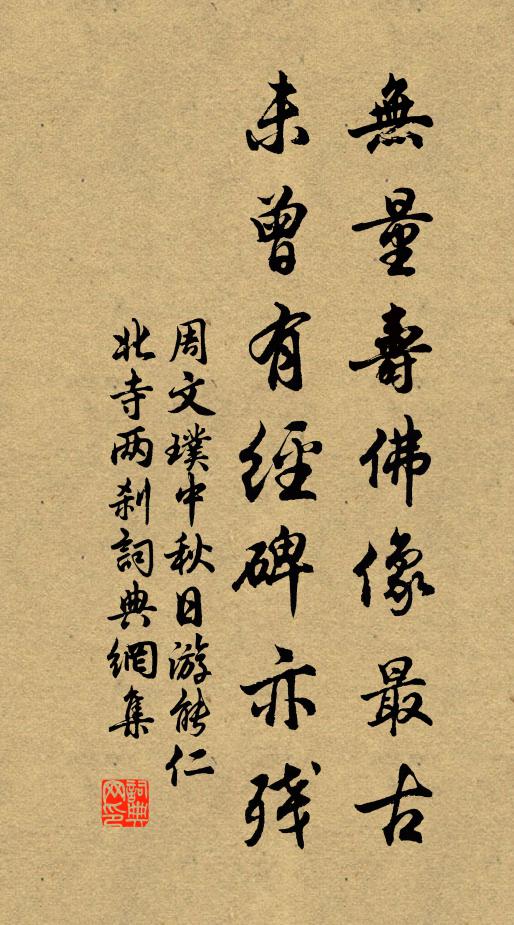 無量壽佛像最古
未曾有經碑亦残
周文璞中秋日游能仁
北寺两刹詞典網集
詞典网印